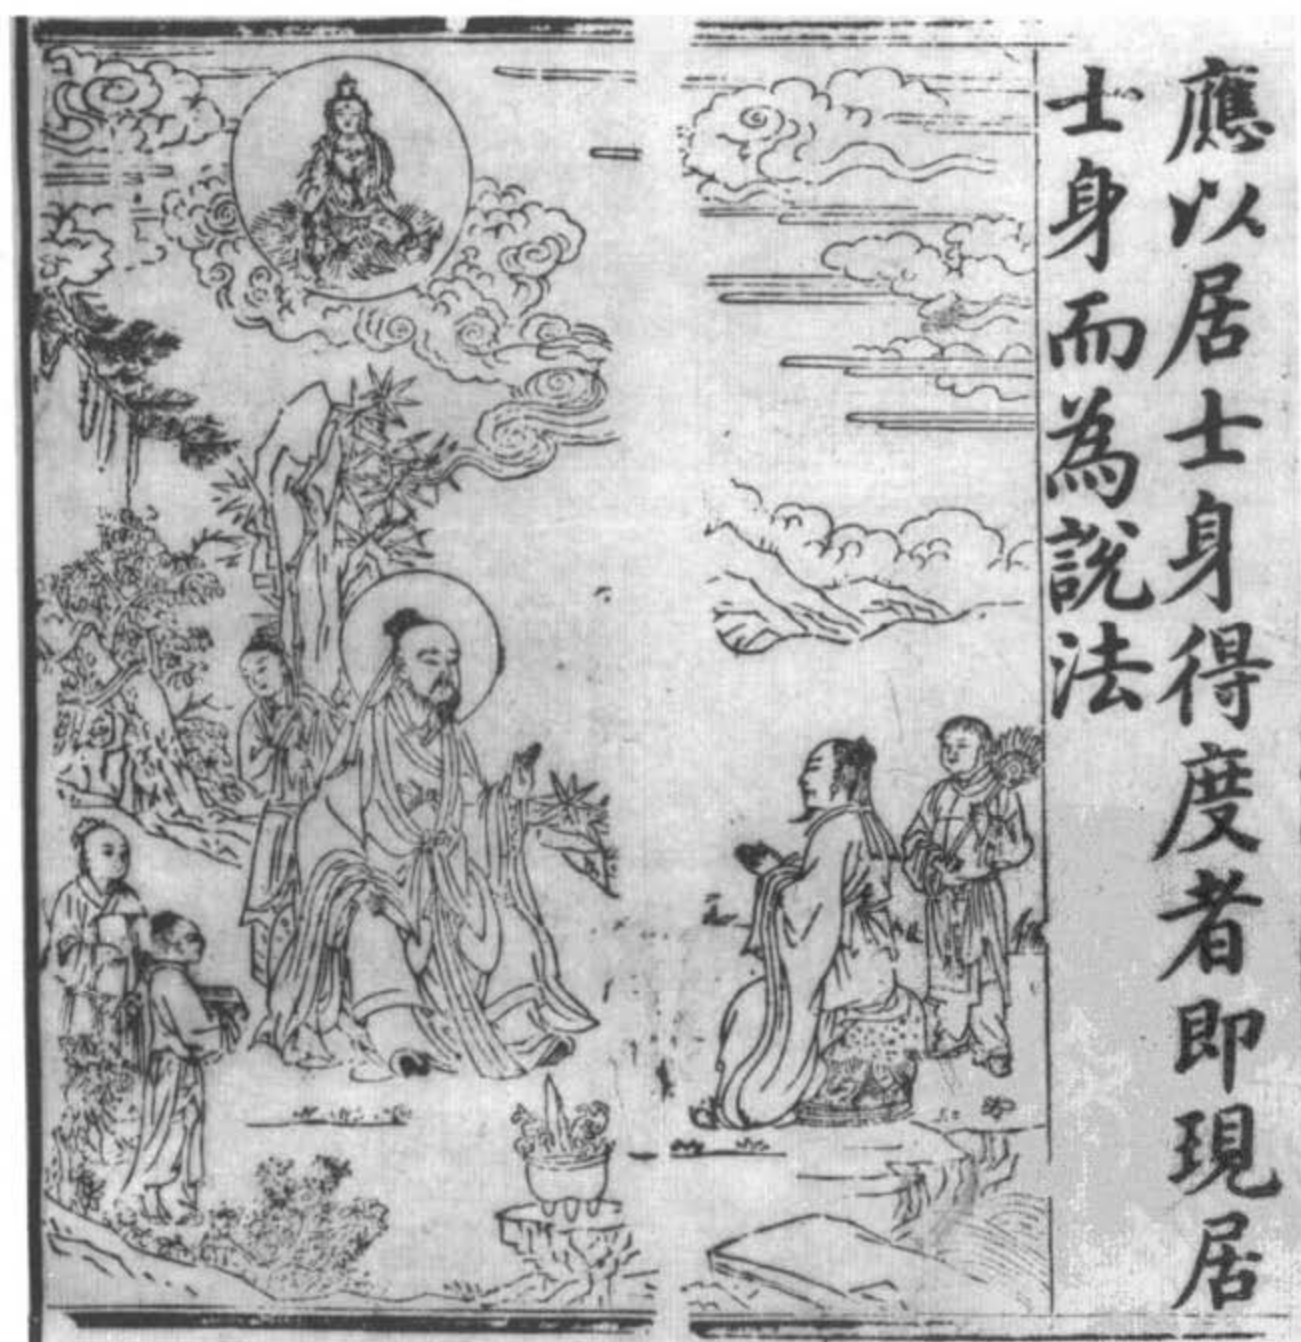 應以居士身得度者即現居
士身而為說法